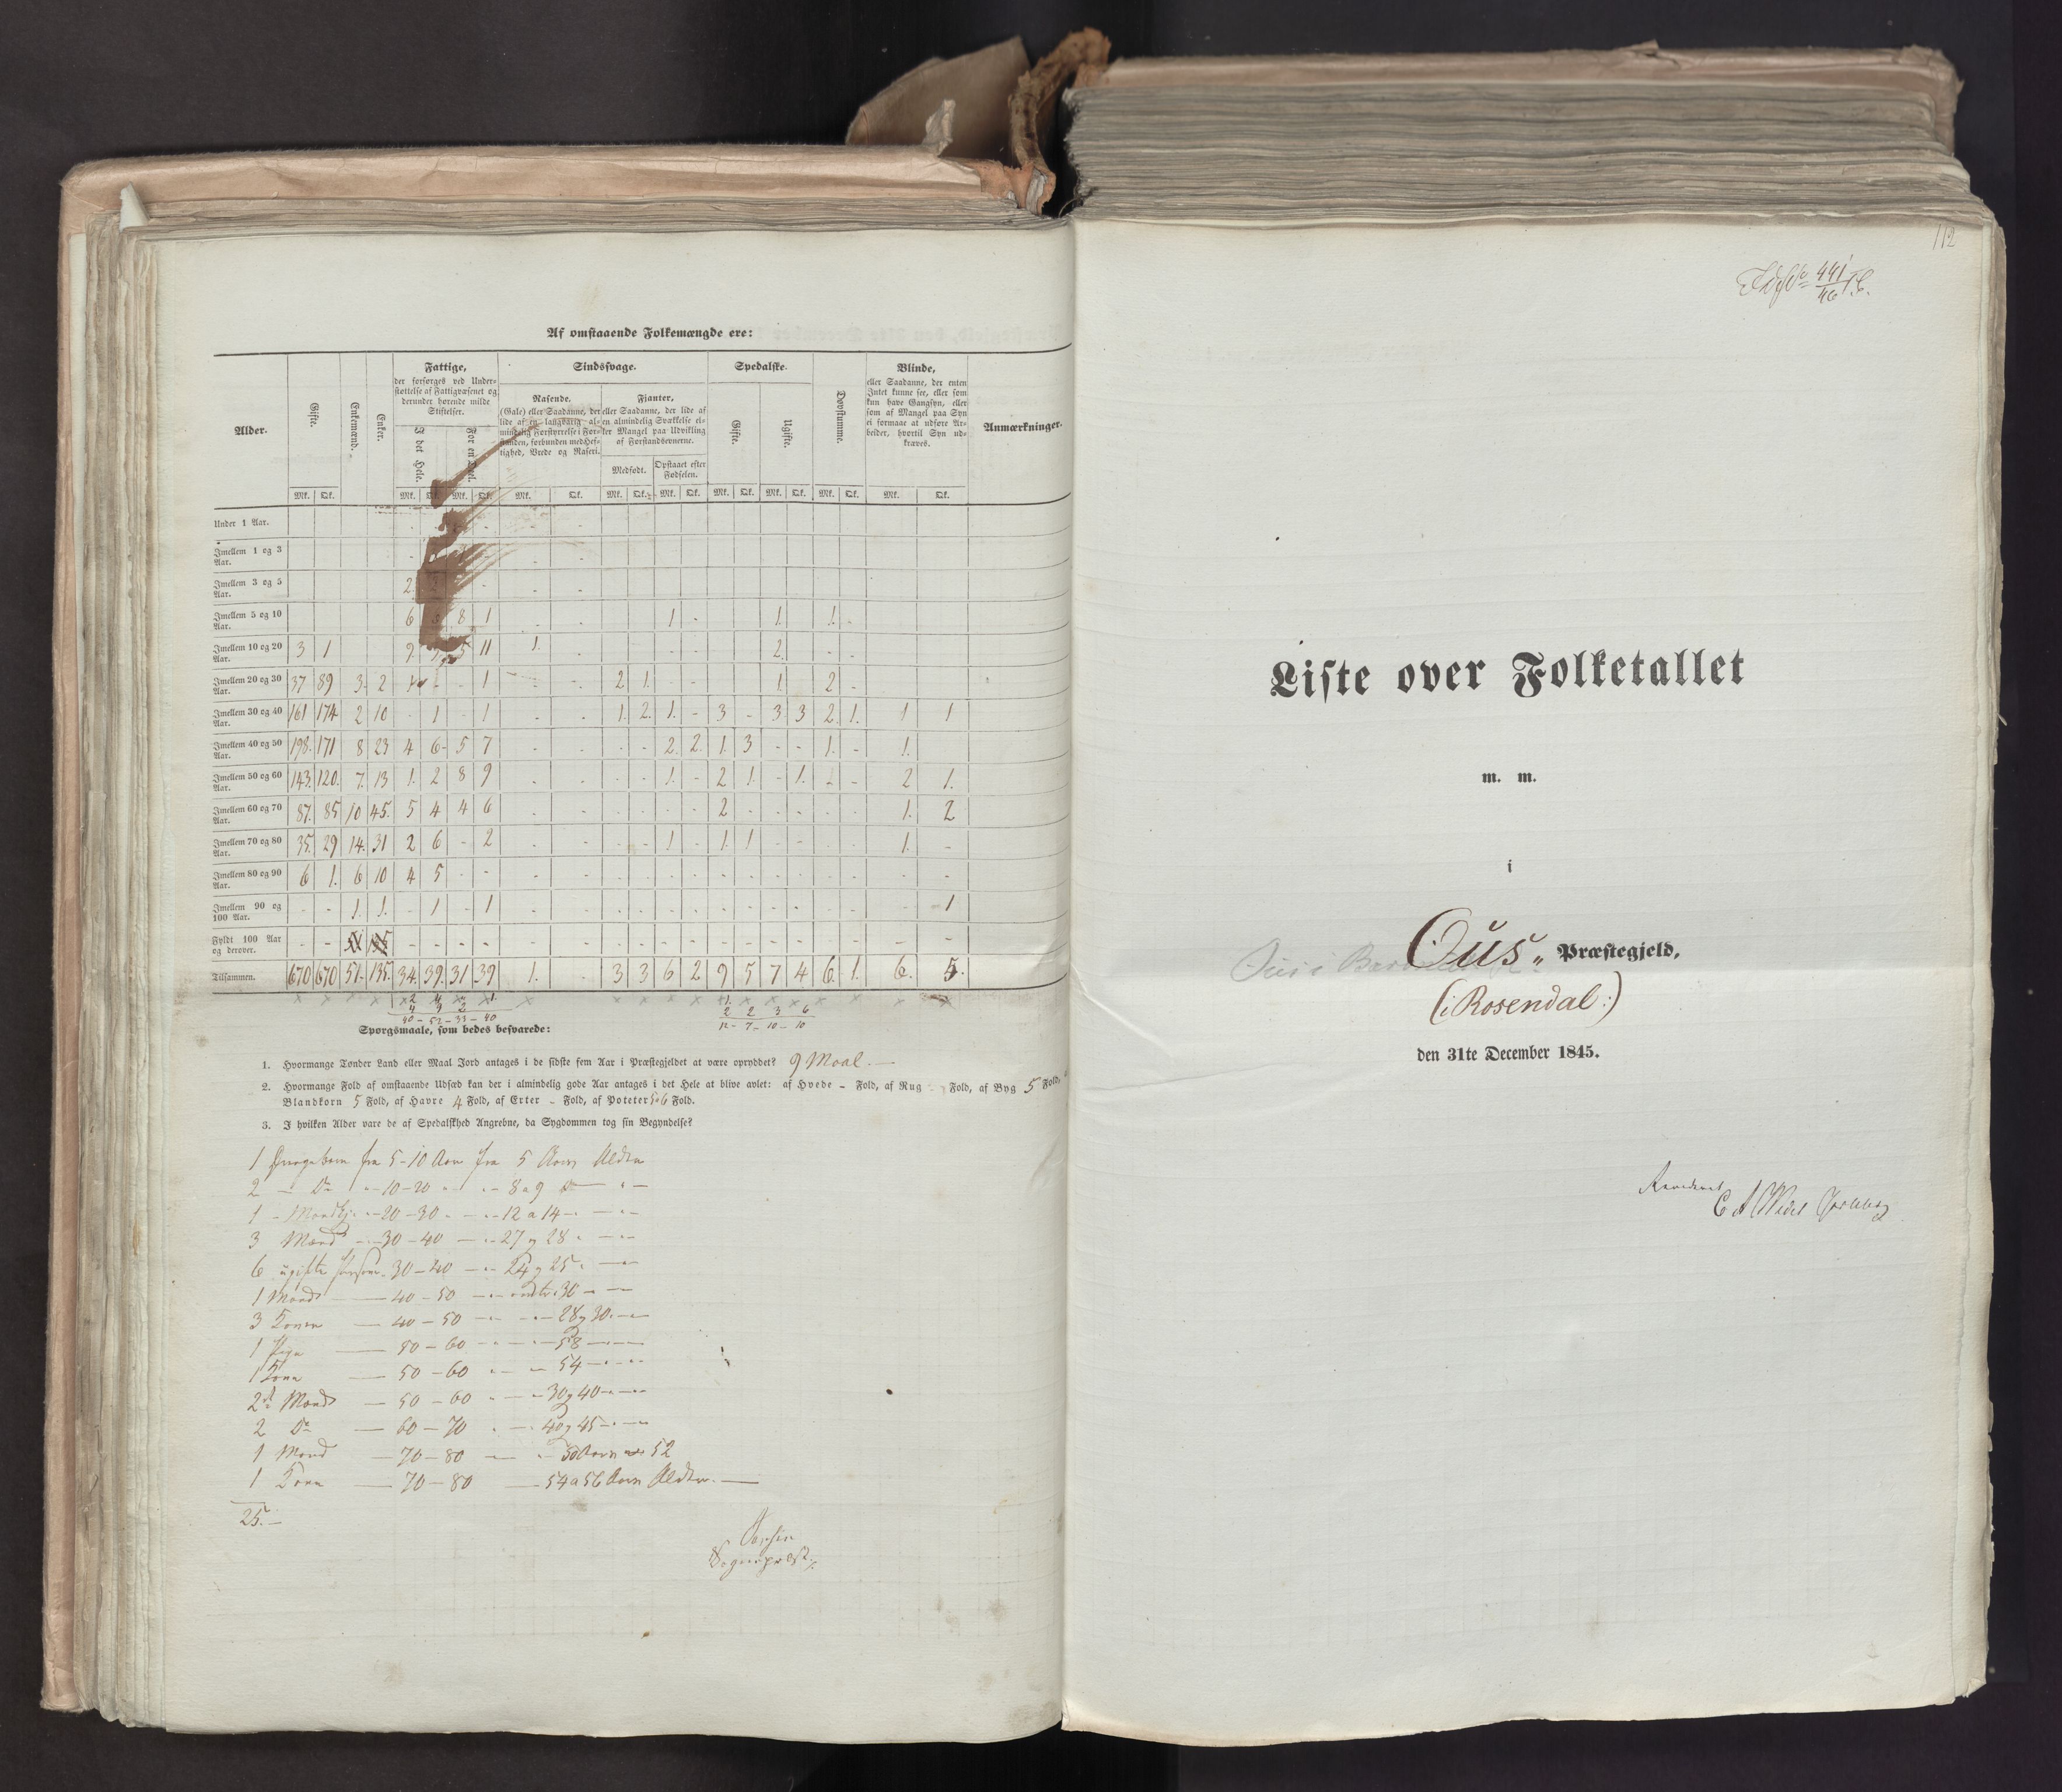 Af omstaaende Folkemængde ere:
Alder.
Gifte.
Enkemænd.
Enker.
Fattige,
der forsørges ved Under-
støttelse af Fattigvæsenet og
derunder hørende milde
Stiftelser.
I det Hele.
For en Deel.
Sindssvage.
Rasende.
(Gale) eller Saadanne, der
lide af en langvarig al-
mindelig Forstyrrelse i For-
standen, forbunden med Hef-
tighed, Vrede og Raseri.
Fjanter,
eller Saadanne, der lide af
en almindelig Svækkelse el-
ler Mangel paa Udvikling
af Forstandsevnerne.
Medfødt.
Opstaaet efter
Fødselen.
Spedalske.
Gifte.
Ugifte.
Døvstumme.
Blinde,
eller Saadanne, der enten
Intet kunne see, eller som
kun have Gangsyn, eller
som af Mangel paa Syn
ei formaae at udføre Ar-
beider, hvortil Syn ud-
kræves.
Anmærkninger.
Mk. Qk. Mk. Qk. Mk. Qk. Mk. Qk. Mk. Qk. Mk. Qk. Mk. Qk. Mk. Qk. Mk. Qk. Mk. Qk.
Under 1 Aar.
Imellem 1 og 3 Aar.
Imellem 3 og 5 Aar. 2
Imellem 5 og 10 Aar. 6 8 1 1 1. 1.
Imellem 10 og 20 Aar. 3 1 5 11 1. 2.
Imellem 20 og 30 Aar. 37 89 3. 2 1 2 1. 1 2
Imellem 30 og 40 Aar. 161 174 2 10 - 1 - 1 1. 2. 1. - 3 - 3 3 2. 1. 1 1
Imellem 40 og 50 Aar. 198. 171 8 23 4 6 5 7 2. 2. 1. 3 - - 1. - 1.
Imellem 50 og 60 Aar. 143. 120. 7. 13 1. 2 8 9 1. - 2 1. - 1. - - 2 1.
Imellem 60 og 70 Aar. 87. 85 10 45. 5 4 4 6 2 1. 2
Imellem 70 og 80 Aar. 35. 29 14. 31 2 6 - 2 1 - 1. 1 1. -
Imellem 80 og 90 Aar. 6 1. 6 10 4 5 - -
Imellem 90 og 100 Aar. - - 1. 1. - 1 - 1 1
Fyldt 100 Aar og derover.
Tilsammen. 670 670 51. 135. 34. 39. 31 39 1. 3 3 6 2 9 5 7 4 6. 1. 6. 5.
Spørgsmaale, som bedes besvarede:
1. Hvormange Tønder Land eller Maal Jord antages i de sidste fem Aar i Præstegjeldet at være opryddet? 9 Maal.
2. Hvormange Fold af omstaaende Udsæd kan der i almindelig gode Aar antages i det Hele at blive avlet: af Hvede - Fold, af Rug - Fold, af Byg 5 Fold,
Blandkorn 5 Fold, af Havre 4 Fold, af Erter - Fold, af Poteter 5 a 6 Fold.
3. I hvilken Alder vare de af Spedalskhed Angrebne, da Sygdommen tog sin Begyndelse?
1 fra 5-10 Aar fra 5 Aars Alder
2 - Do - 10-20 - 8 a 9
1 - 20-30 - 12 a 14
3 Mænd - 30-40 - 27 og 28
6 ugifte 30-40 - 24 og 25
1 Mand - 40-50 - 30
3 Koner - 40-50 - 28 og 30
1 Pige - 50-60 - 58
1 Kone - 50-60 - 54
2 Mænd - 50-60 - 30 og 40
2 Do - 60-70 - 40 og 45
1 Mand - 70-80 - 52
1 Kone - 70-80 - 54 a 56 Aars Alder.
25.
Sognepræst
112
441/46
Liste over Folketallet
m. m.
i
Ous Præstegjeld,
(i Rosendal:)
den 31te December 1845.